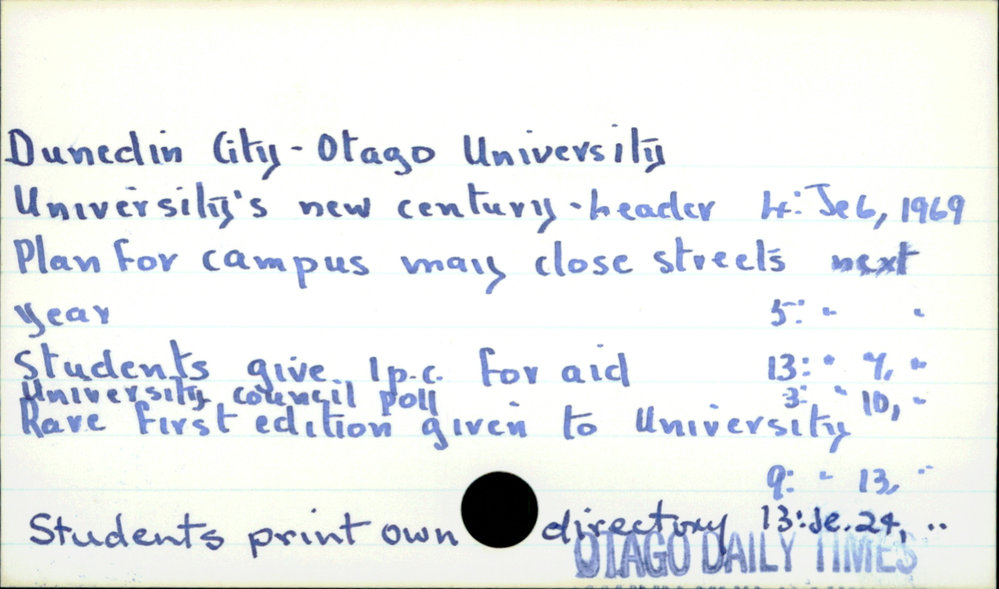 Dunedin City - Otago University
University's new century - header 4: Je 6, 1969
Plan for campus may close streets next
year 5: " "
Students give 1 p.c. for aid 13: " 7, "
University council poll 3: " 10, "
Rare first edition given to University
9: " 13, "
Students print own directory 13: Je. 24, "
OTAGO DAILY TIMES